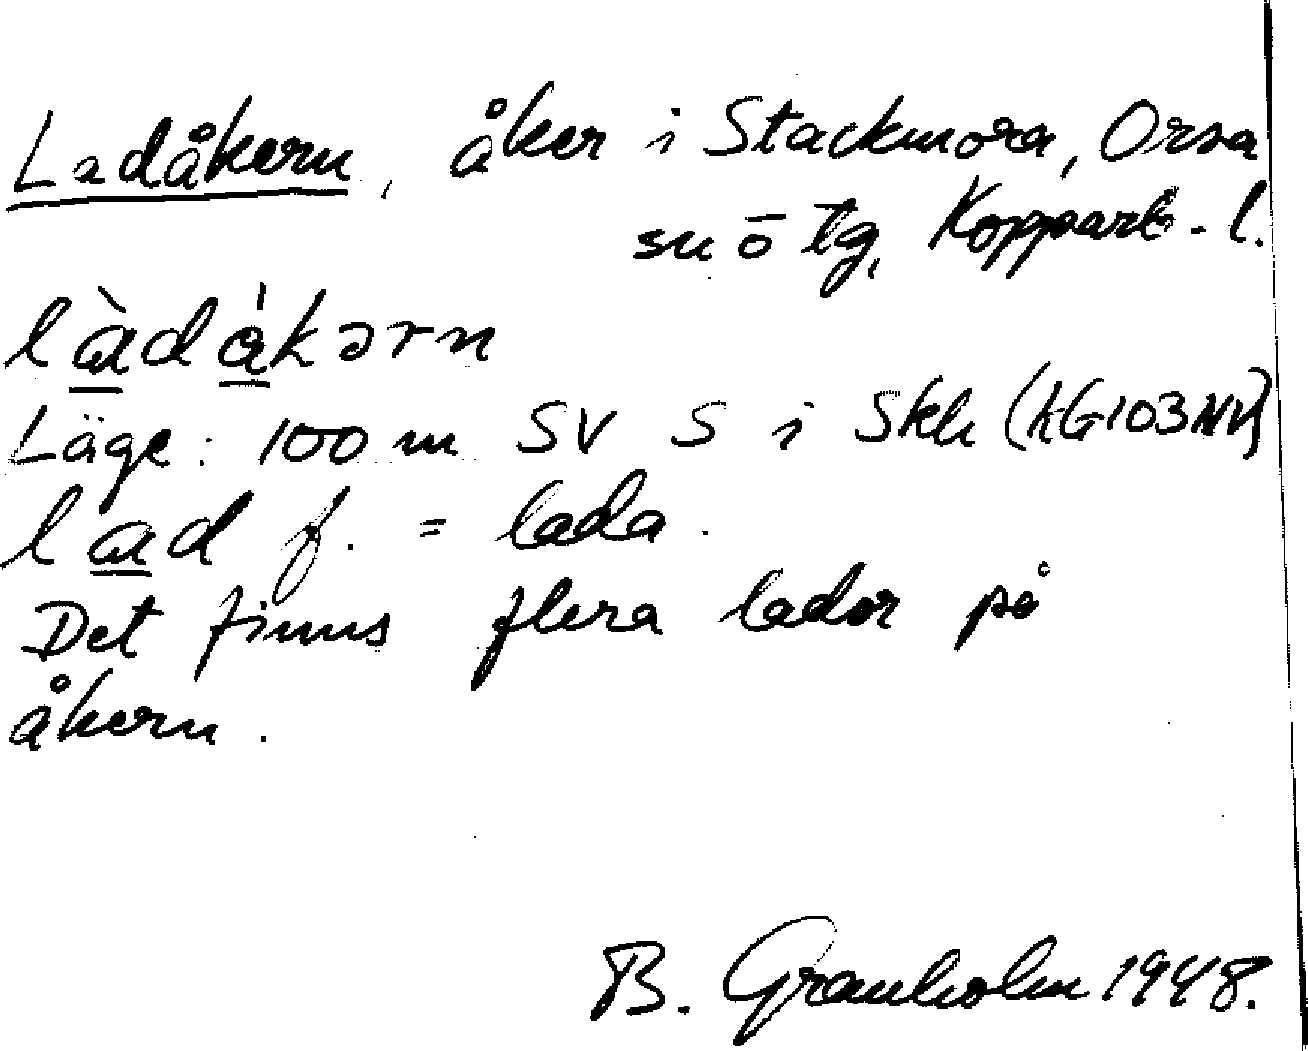 Ladåkern, åker i Stackmora, Orsa
sn ō tg, Kopparb. l.
làdákərn
Läge: 100 m SV S i Skh (KG103NV)
lad f. = lada.
Det finns flera lador på
åkern.
B. Granholm 1948.